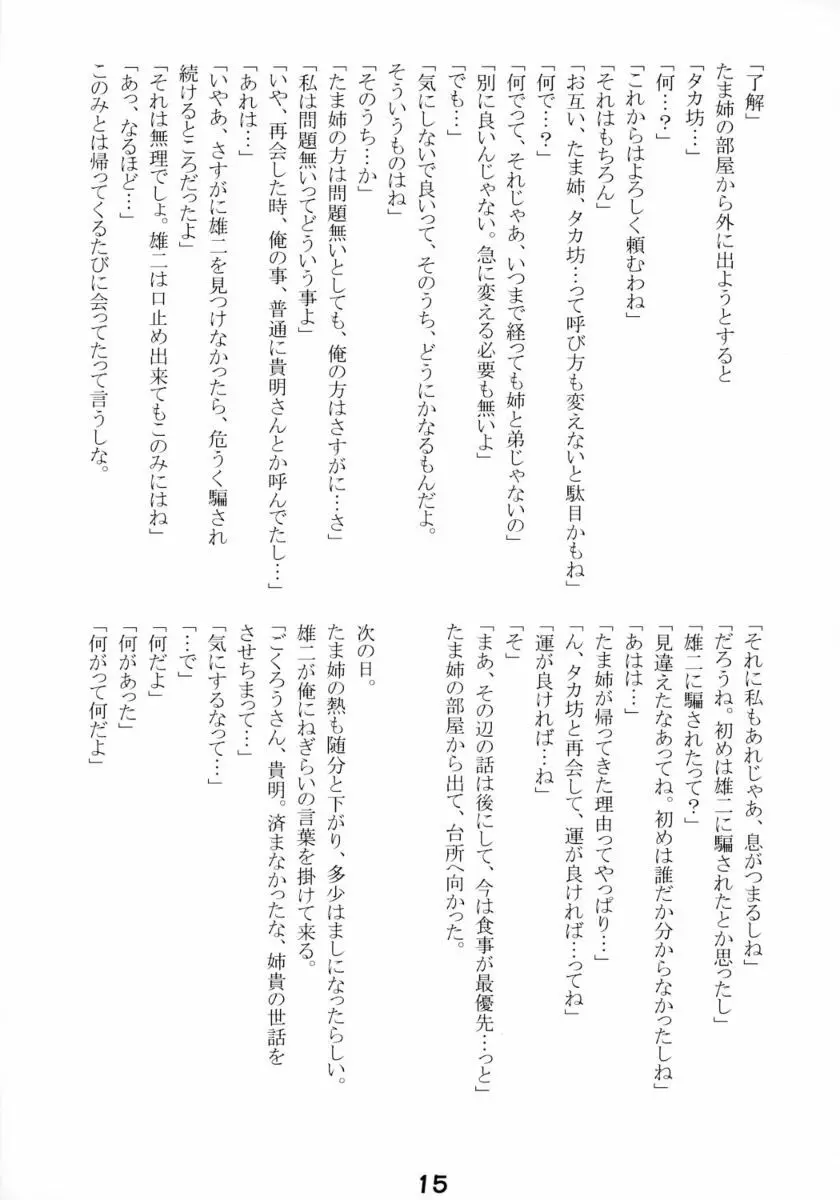 「了解」
たま姉の部屋から外に出ようとすると
「タカ坊…」
「何…？」
「これからはよろしく頼むわね」
「それはもちろん」
「お互い、たま姉、タカ坊…って呼び方も変えないと駄目かもね」
「何で…？」
「何でって、それじゃあ、いつまで経っても姉と弟じゃないの」
「別に良いんじゃない。急に変える必要も無いよ」
「でも…」
「気にしないで良いって、そのうち、どうにかなるもんだよ。
そういうものはね」
「そのうち…か」
「たま姉の方は問題無いとしても、俺の方はさすがに…さ」
「私は問題無いってどういう事よ」
「いや、再会した時、俺の事、普通に貴明さんとか呼んでたし…」
「あれは…」
「いやあ、さすがに雄二を見つけなかったら、危うく騙され
続けるところだったよ」
「それは無理でしょ。雄二は口止め出来てもこのみにはね」
「あっ、なるほど…」
このみとは帰ってくるたびに会ってたって言うしな。
「それに私もあれじゃあ、息がつまるしね」
「だろうね。初めは雄二に騙されたとか思ったし」
「雄二に騙されたって？」
「見違えたなあってね。初めは誰だか分からなかったしね」
「あはは…」
「たま姉が帰ってきた理由ってやっぱり…」
「ん、タカ坊と再会して、運が良ければ…ってね」
「運が良ければ…ね」
「そ」
「まあ、その辺の話は後にして、今は食事が最優先…っと」
たま姉の部屋から出て、台所へ向かった。
次の日。
たま姉の熱も随分と下がり、多少はましになったらしい。
雄二が俺にねぎらいの言葉を掛けて来る。
「ごくろうさん、貴明。済まなかったな、姉貴の世話を
させちまって…」
「気にするなって…」
「…で」
「何だよ」
「何があった」
「何がって何だよ」
15